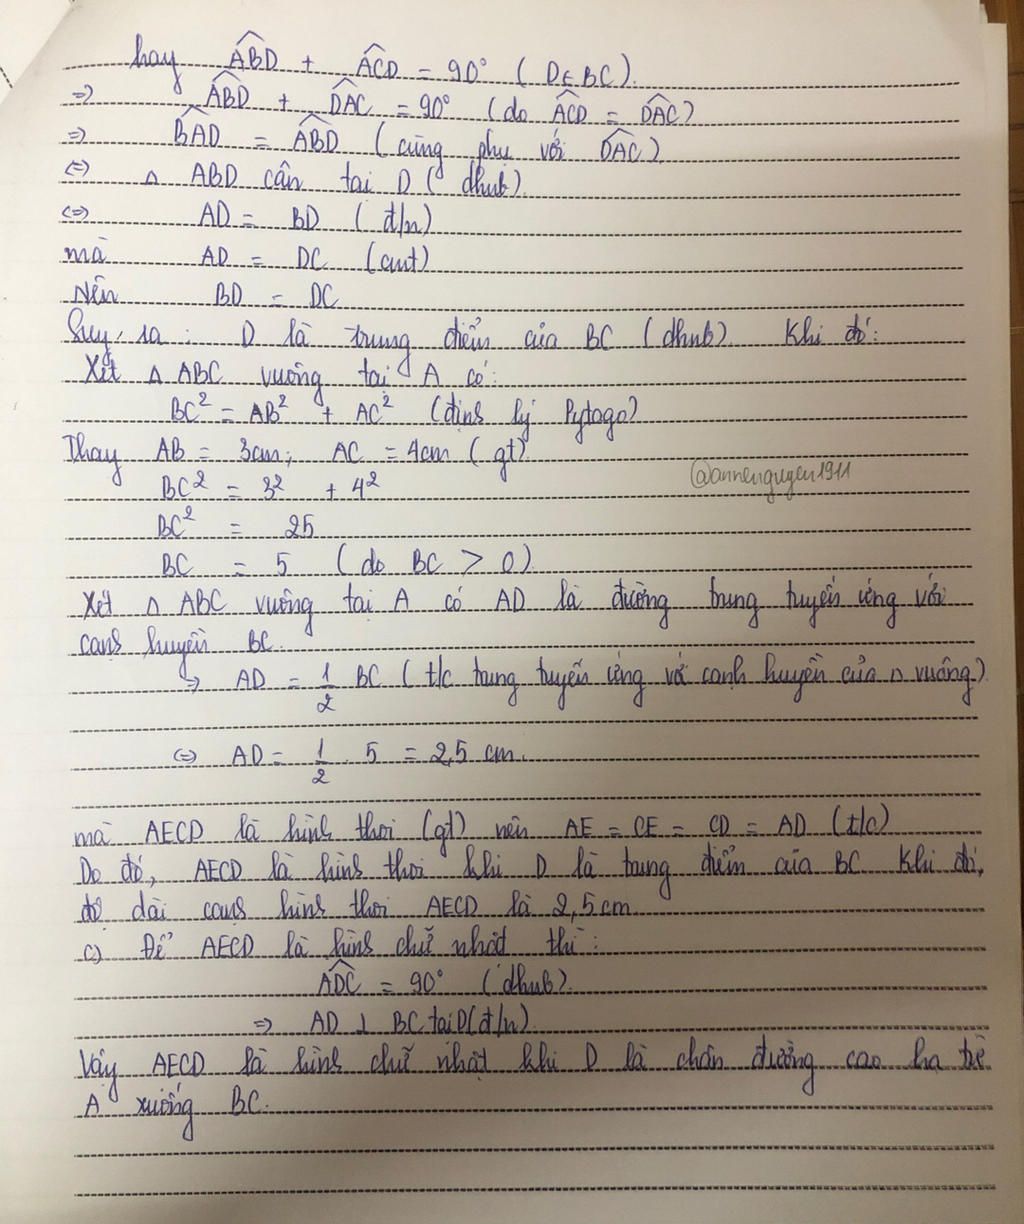 hay ABD + ACD = 90° ( D∈BC).
=> ABD + DAC = 90° (do ACD = DAC)
=> BAD = ABD (cùng phụ với DAC)
<=> Δ ABD cân tại D ( dhnb).
<=> AD = BD ( đ/n)
mà AD = DC (cmt)
Nên BD = DC
Suy ra : D là trung điểm của BC ( dhnb). Khi đó:
Xét Δ ABC vuông tại A có:
BC² = AB² + AC² (định lý Pytago)
Thay AB = 3cm; AC = 4cm ( gt)
@annenguyen1911
BC² = 3² + 4²
BC² = 25
BC = 5 ( do BC > 0)
Xét Δ ABC vuông tại A có AD là đường trung tuyến ứng với
cạnh huyền BC.
=> AD = 1/2 BC ( t/c trung tuyến ứng với cạnh huyền của Δ vuông)
<=> AD = 1/2 . 5 = 2,5 cm.
mà AECD là hình thoi (gt) nên AE = CE = CD = AD (t/c)
Do đó, AECD là hình thoi khi D là trung điểm của BC. Khi đó,
độ dài cạnh hình thoi AECD là 2,5cm
c) Để AECD là hình chữ nhật thì:
ADC = 90° ( dhnb).
=> AD ⊥ BC tại D(đ/n)
Vậy AECD là hình chữ nhật khi D là chân đường cao hạ từ
A xuống BC.